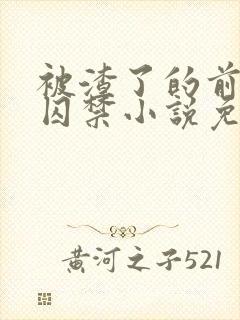 被渣了的前
囚禁小说免
黄河之子521